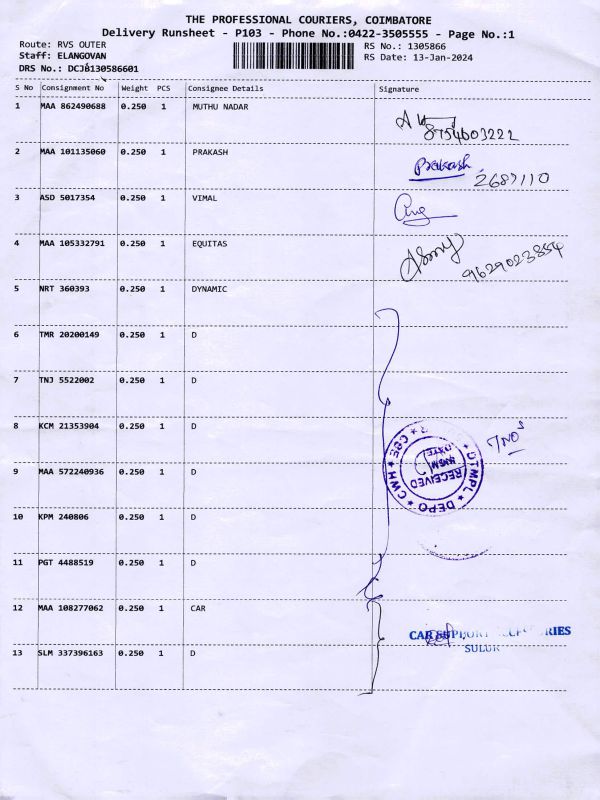 THE PROFESSIONAL COURIERS, COIMBATORE
Delivery Runsheet - P103 - Phone No.:0422-3505555 - Page No.:1
Route: RVS OUTER
RS No.: 1305866
Staff: ELANGOVAN
RS Date: 13-Jan-2024
DRS No.: DCJB130586601
S No Consignment No Weight PCS Consignee Details Signature
1 MAA 862490688 0.250 1 MUTHU NADAR
8754603222
2 MAA 101135060 0.250 1 PRAKASH Prakash
2687110
3 ASD 5017354 0.250 1 VIMAL
4 MAA 105332791 0.250 1 EQUITAS
9629023854
5 NRT 360393 0.250 1 DYNAMIC
6 TMR 20200149 0.250 1 D
7 TNJ 5522002 0.250 1 D
8 KCM 21353904 0.250 1 D
7 NOS
9 MAA 572240936 0.250 1 D
DTMPL ★ DEPO ★ CWH ★ CBE ★
RECEIVED
DATE
10 KPM 240806 0.250 1 D
11 PGT 4488519 0.250 1 D
12 MAA 108277062 0.250 1 CAR
CAR SUPPORT ACCESSORIES
SULUR
13 SLM 337396163 0.250 1 D